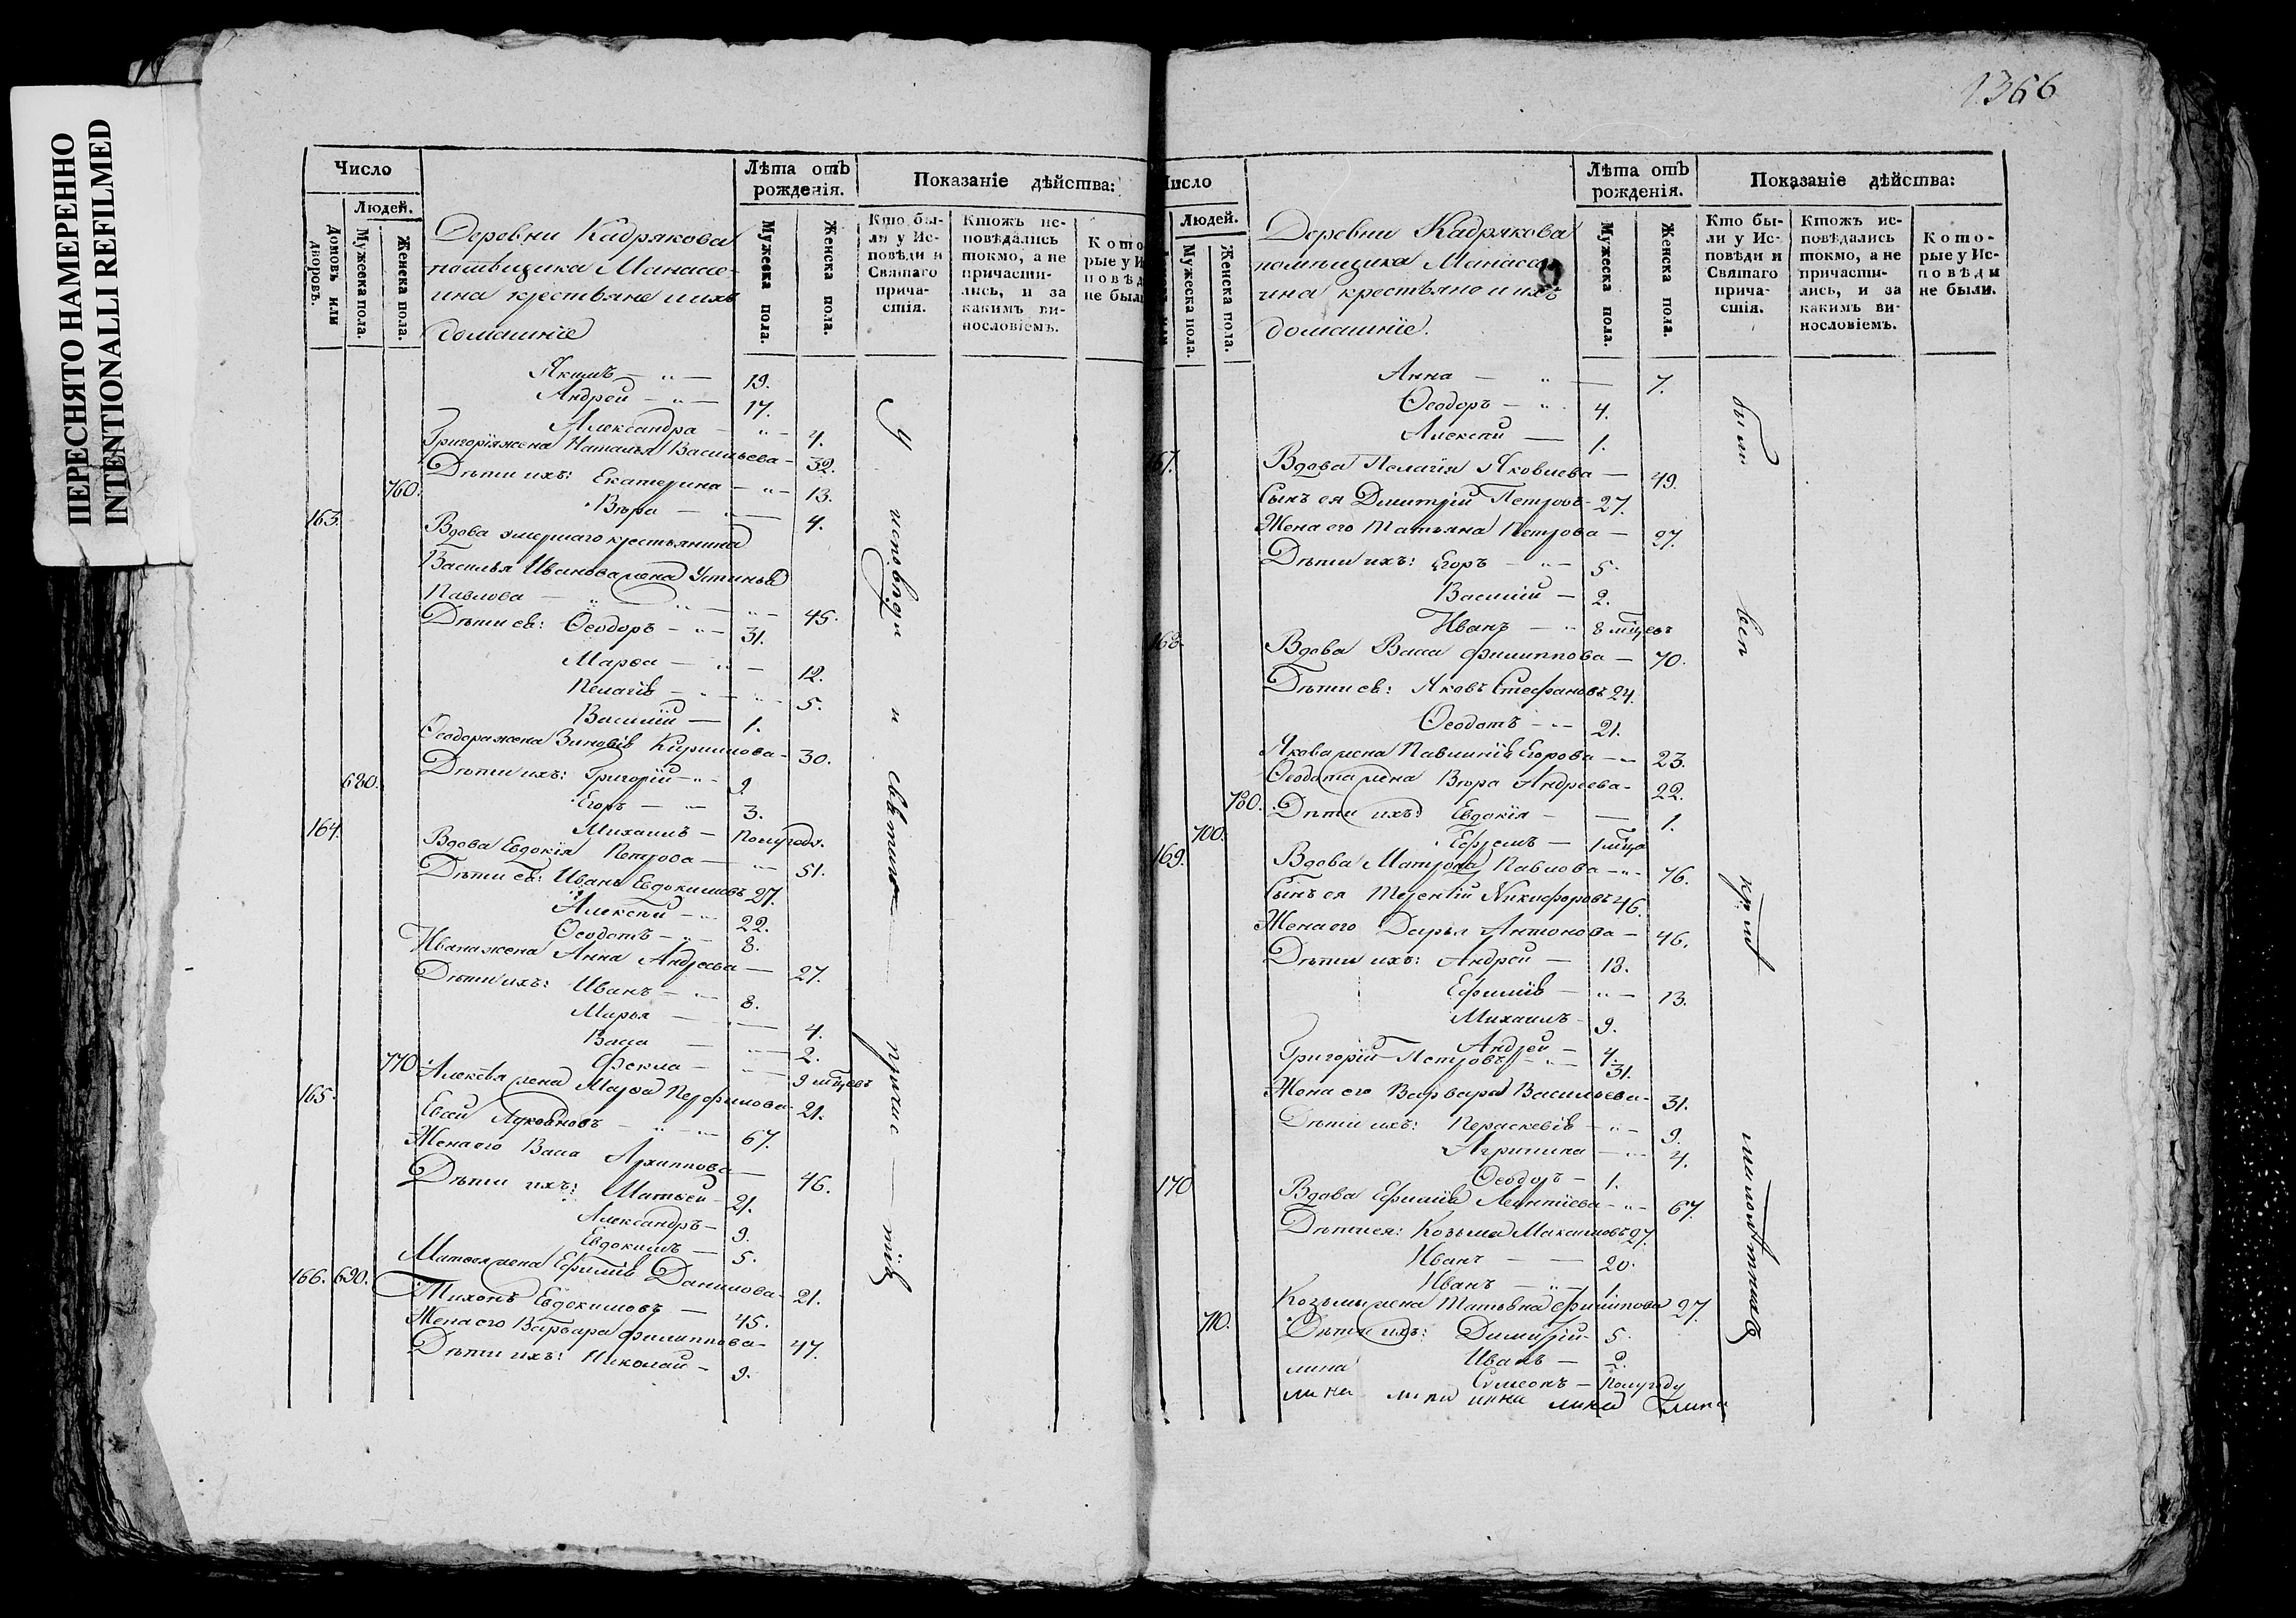 ПЕРЕСНЯТО НАМЕРЕННО
INTENTIONALLI REFILMED
Число
Людей.
Домовъ или дворовъ.
Мужеска пола.
Женска пола.
Деревни Кадрякова
помѣщика Манассе-
ина крестьяне и ихъ
домашніе
Лѣта отъ
рожденія.
Мужеска пола.
Женска пола.
Показаніе дѣйства:
Кто бы-
ли у Ис-
повѣди и
Святаго
прича-
стія.
Ктожъ ис-
повѣдались
токмо, а не
причасти-
лись, и за
какимъ ви-
нословіемъ.
Кото
рые у И
повѣд
не был
Якимъ — 19.
Андрей — 17.
Александра — 4.
Григорія жена Наталья Васильева — 32.
Дѣти ихъ: Екатерина — 13.
760. Вѣра — 4.
163. Вдова умершаго крестьянина
Василья Иванова жена Устинья
Павлова — 45.
Дѣти ея: Ѳеодоръ — 31.
Марѳа — 12.
Пелагія — 5.
Василій — 1.
Ѳеодора жена Зиновія Кирилова — 30.
Дѣти ихъ: Григорій — 9.
680. Егоръ — 3.
Михаилъ — полугода.
164. Вдова Евдокія Петрова — 51.
Дѣти ея: Иванъ Евдокимовъ 27.
Алексѣй — 22.
Ѳеодотъ — 8.
Ивана жена Анна Андреева — 27.
Дѣти ихъ: Иванъ — 8.
Марья — 4.
Васса — 2.
Фекла — 9 мцевъ
770. Алексѣя жена Марѳа Перфилова — 21.
165. Евсей Луковновъ — 67.
Жена его Васса Архиппова — 46.
Дѣти ихъ: Матвей — 21.
Александръ — 9.
Евдокимъ — 5.
Матвея жена Ефимія Данилова — 21.
166. 690. Тихонъ Евдокимовъ — 45.
Жена его Варвара Филиппова — 47.
Дѣти ихъ: Николай — 9.
У исповѣди и святаго прича — стія
1366
Число
Людей.
Мужеска пола.
Женска пола.
Деревни Кадрякова
помѣщика Манассе
ина крестьяне и ихъ
домашніе.
Лѣта отъ
рожденія.
Мужеска пола.
Женска пола.
Показаніе дѣйства:
Кто бы-
ли у Ис-
повѣди и
Святаго
прича-
стія.
Ктожъ ис-
повѣдались
токмо, а не
причасти-
лись, и за
какимъ ви-
нословіемъ.
Кото-
рые у Ис-
повѣди
не были.
Анна — 7.
Ѳеодоръ — 4.
Алексѣй — 1.
167. Вдова Пелагія Яковлева — 49.
Сынъ ея Дмитрій Петровъ — 27.
Жена его Татьяна Петрова — 27.
Дѣти ихъ: Егоръ — 5.
Василій — 2.
Иванъ — 8 мцевъ
168. Вдова Васса Филиппова — 70.
Дѣти ея: Яковъ Стефановъ 24.
Ѳеодотъ — 21.
Якова жена Павлинія Егорова — 23.
Ѳеодота жена Вѣра Андреева — 22.
780. Дѣти ихъ: Евдокія — 1.
700. Ефремъ — 1 мца
169. Вдова Матрона Павлова — 76.
Сынъ ея Терентій Никифоровъ 46.
Жена его Дарья Антонова — 46.
Дѣти ихъ: Андрей — 18.
Ефимія — 13.
Михаилъ — 9.
Андрей — 4.
Григорій Петровъ — 31.
Жена его Варвара Васильева — 31.
Дѣти ихъ: Пераскевія — 9.
Агрипина — 4.
Ѳеодоръ — 1.
170 Вдова Ефимія Леонтіева — 67.
Дѣти ея: Козьма Максимовъ 27.
Иванъ — 20.
Иванъ — 1.
Козьмы жена Татьяна Филипова 27.
710. Дѣти ихъ: Димитрій — 5.
Иванъ — 2.
Симеонъ — полугоду
были всѣ кромѣ малолѣтныхъ